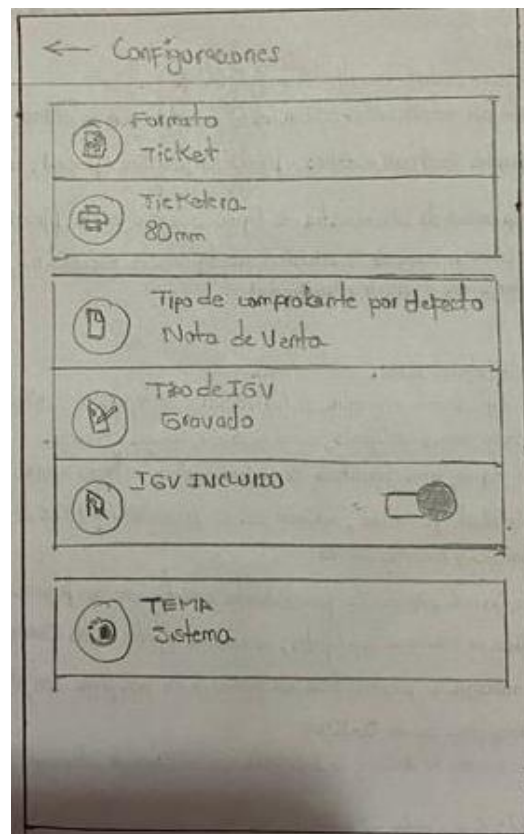 Configuraciones
Formato
Ticket
Ticketera
80mm
Tipo de comprobante por defecto
Nota de Venta
Tipo de IGV
Gravado
IGV INCLUIDO
TEMA
Sistema